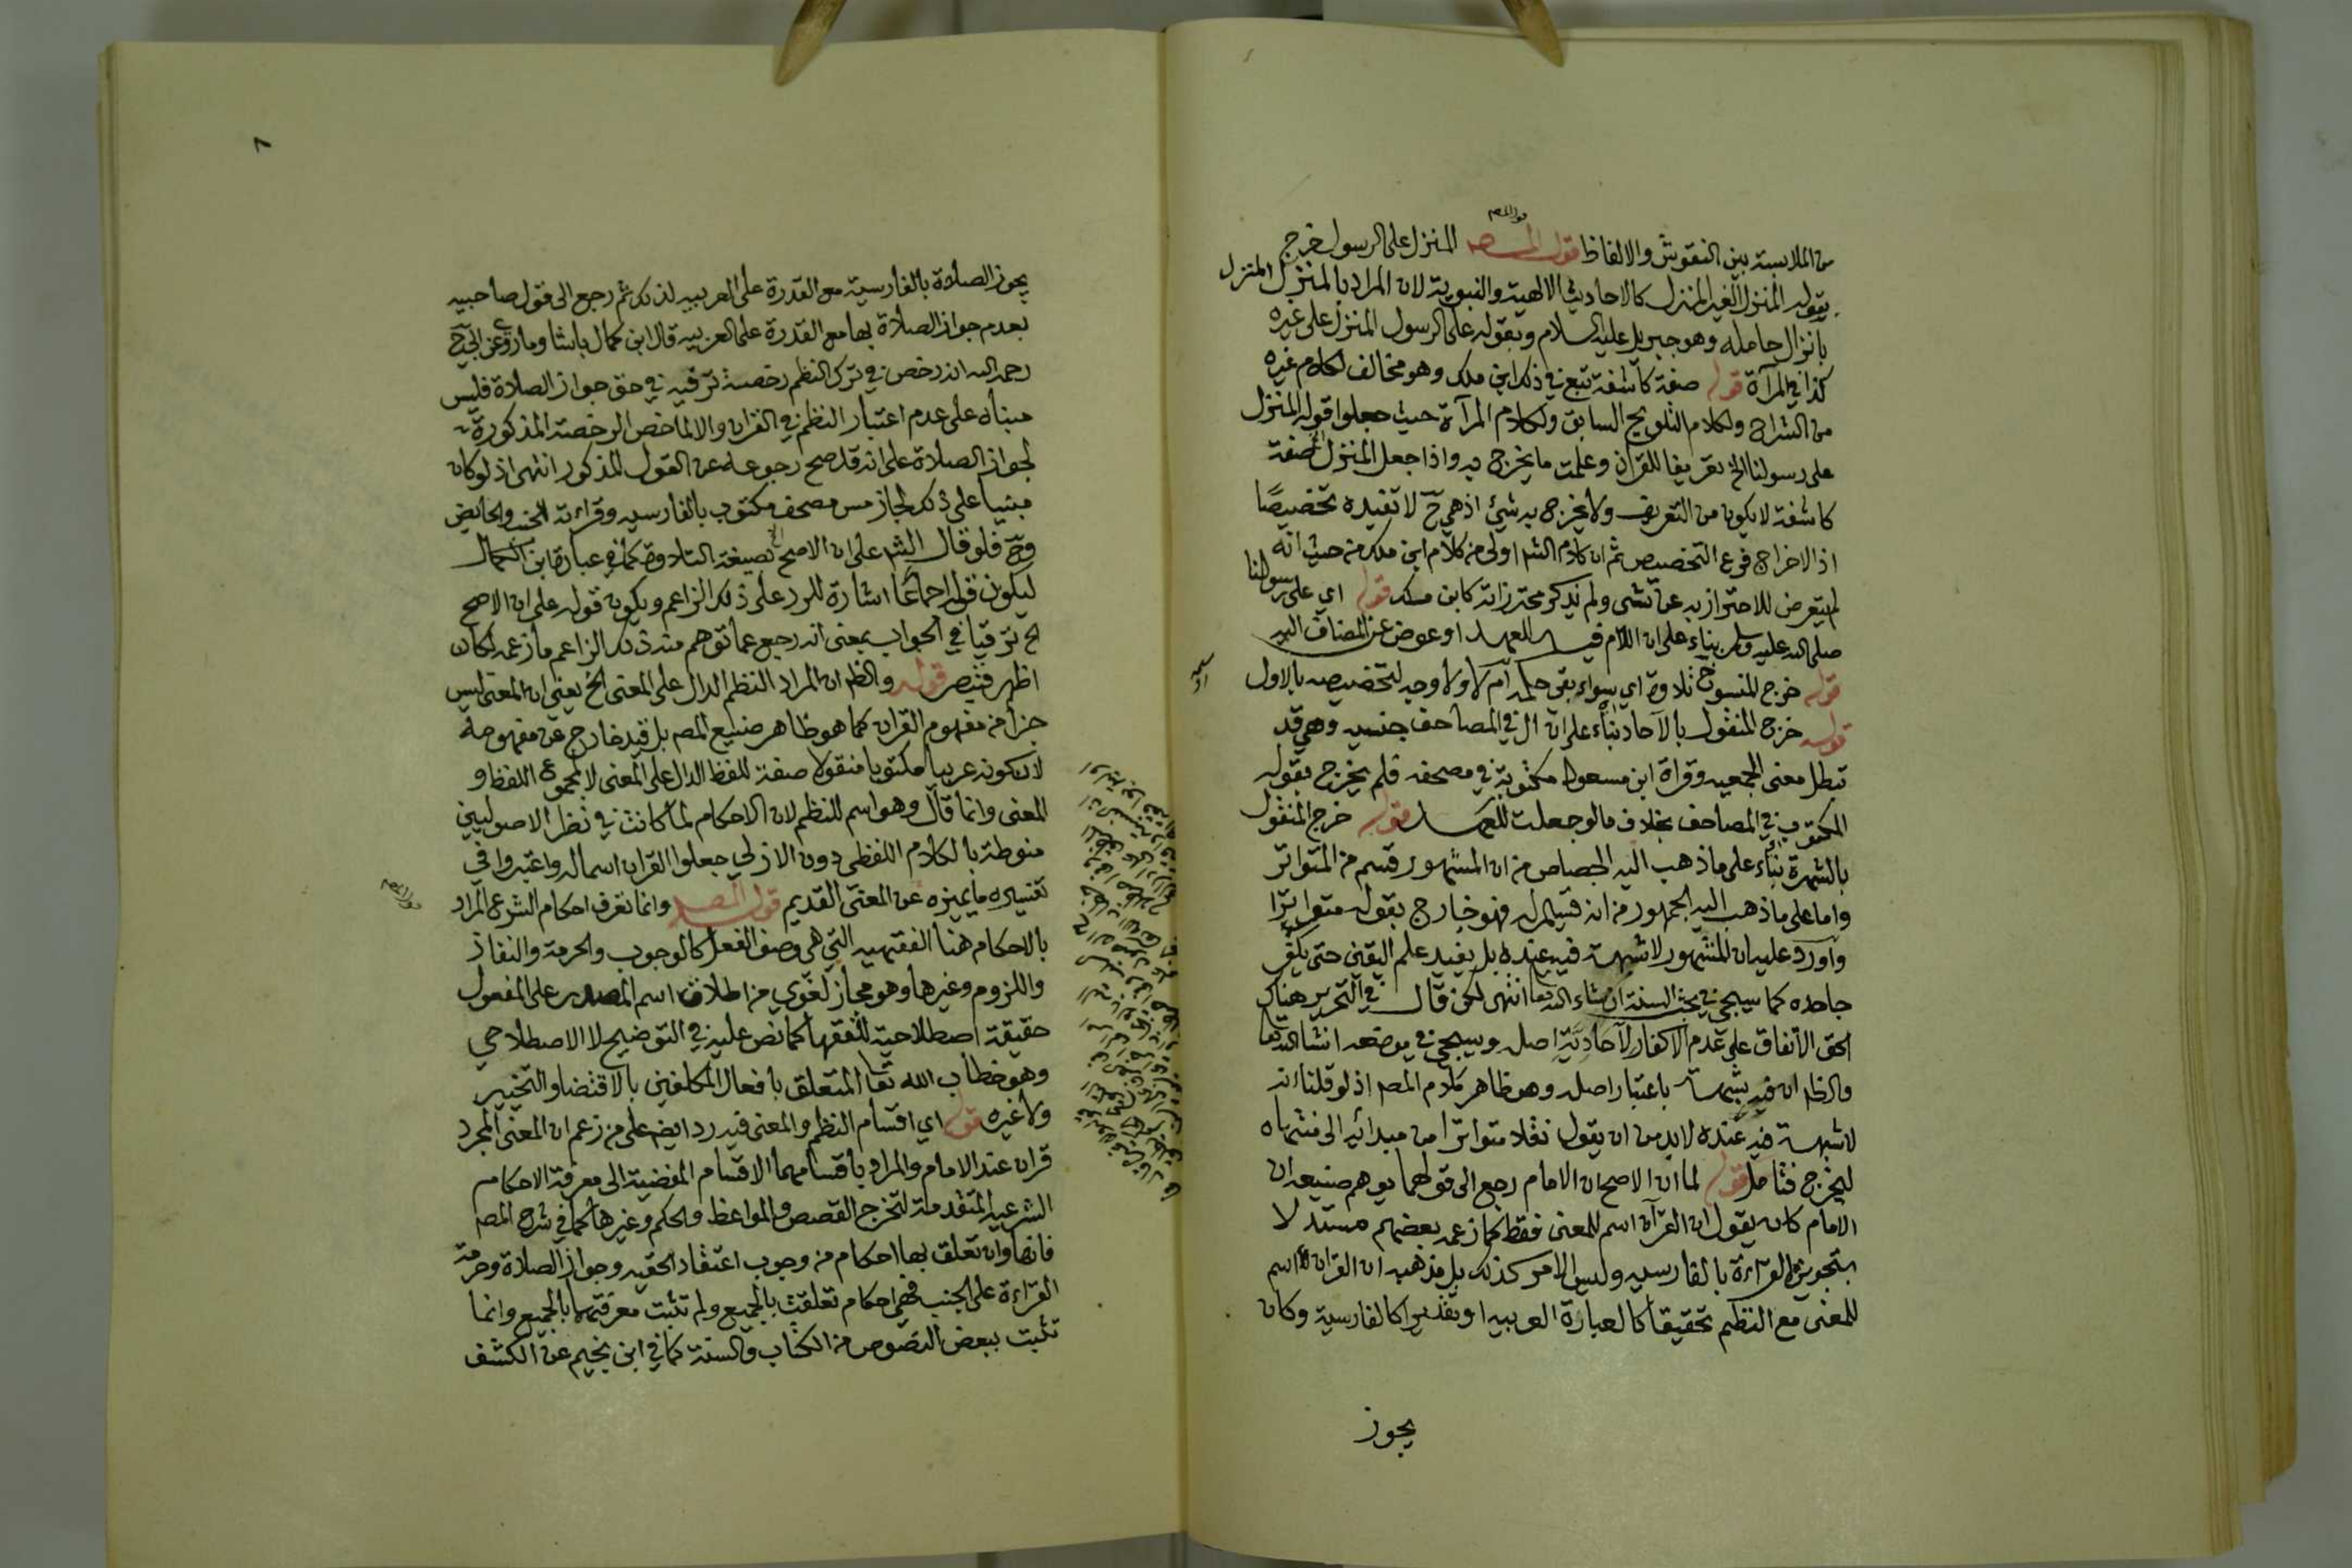 من الملابسة بين النقوش والالفاظ قوله المصـ المنزل على الرسول خرج
بقوله المنزل الغير المنزل كالاحاديث الالهية والنبوية لان المراد بالمنزل المنزل
بانزال حامله وهو جبريل عليه السلام وبقوله على الرسول المنزل على غيره
كذا في المرآة قوله صفة كاشفة تبع في ذلك ابن ملك وهو مخالف لكلام غيره
من الشراح ولكلام التلويح السابق ولكلام المرآة حيث جعلوا قوله المنزل
على رسولنا الخ تعريفا للقران وعلمت ما يخرج به واذا جعل المنزل صفة
كاشفة لا يكون من التعريف ولا يخرج به شيئ اذ هي ح لا تفيده تخصيصًا
اذ الاخراج فرع التخصيص ثم ان كلام الشـ اولى من كلام ابن ملك من حيث انه
لم يتعرض للاحتراز به عن شي ولم يذكر محترزاته كابن ملك قوله اي على رسولنا
صلى الله عليه وسلم بناء على ان اللام فيه للعهد او عوض عن المضاف اليه
قوله خرج المنسوخ تلاوة اي سواء بقي حكمه ام لا ولا وجه لتخصيصه بالاول
قوله خرج المنقول بالآحاد بناء على ان ال في المصاحف جنسيه وهي قد
تبطل معنى الجمعيه وقراة ابن مسعود مكتوبة في مصحفه فلم يخرج بقوله
المكتوب في المصاحف بخلاف ما لو جعلت للعهد قوله خرج المنقول
بالشهرة بناء على ما ذهب اليه الجصاص من ان المشهور قسم من المتواتر
واما على ما ذهب اليه الجمهور من انه قسيم له فهو خارج بقوله متواترا
واورد عليه ان المشهور لا شبهة فيه عنده بل يفيد علم اليقين حتى يكفر
جاحده كما سيجي في بحث السنة ان شاء الله تعا انتهى لكن قال في التحرير هناك
الحق الاتفاق على عدم الاكفار لآحادية اصله وسيجي في موضعه انشا الله تعا
والظ ان فيه شبهة باعتبار اصله وهو ظاهر كلام المصـ اذ لو قلنا انه
لا شبهة فيه عنده لا بد من ان يقول نقلا متواترا من مبدائه الى منتهاه
ليخرج فتامل قوله لما ان الاصح ان الامام رجع الى قولهما يوهم صنيعه ان
الامام كان يقول ان القرآن اسم للمعنى فقط كما زعمه بعضهم مستدلا
بتجويزه القراءة بالفارسيه وليس الامر كذلك بل مذهبه ان القران اسم
للمعنى مع النظم تحقيقا كالعبارة العربيه او تقديرا كالفارسية وكان
يجوز
٨
يجوز الصلاة بالفارسية مع القدرة على العربيه لذلك ثم رجع الى قول صاحبيه
بعدم جواز الصلاة بها مع القدرة على العربيه قال ابن كمال باشا وما روي عن ابي ح
رحمه الله انه رخص في ترك النظم رخصة ترفيه في حق جواز الصلاة فليس
مبناه على عدم اعتبار النظم في القران والا لما خص الرخصة المذكورة
لجواز الصلاة على انه قد صح رجوعه عن القول المذكور انتهى اذ لو كان
مبنيا على ذلك لجاز مس مصحف مكتوب بالفارسيه وقراءته للجنب والحايض
وح فلو قال الشـ على ان الاصح بصيغة العلاوة كما في عبارة ابن الكمال
ليكون قوله اجماعا اشارة للرد على ذلك الزاعم ويكون قوله على ان الاصح
الخ ترقيا في الجواب بمعنى انه رجع عما توهم منه ذلك الزاعم ما زعمه لكان
اظهر فتبصر قوله والظ ان المراد النظم الدال على المعنى الخ يعني ان المعنى ليس
جزأ من مفهوم القران كما هو ظاهر صنيع المصـ بل قيد خارج عن مفهومه
لان كونه عربيا مكتوبا منقولا صفة للفظ الدال على المعنى لا لمجموع اللفظ و
المعنى وانما قال وهو اسم للنظم لان الاحكام لما كانت في نظر الاصوليين
منوطة بالكلام اللفظي دون الازلي جعلوا القران اسما له واعتبروا في
تفسيره ما يميزه عن المعنى القديم قوله المصـ وانما تعرف احكام الشرع المراد
بالاحكام هنا الفقهيه التي هي وصف الفعل كالوجوب والحرمة والنفاذ
واللزوم وغيرها وهو مجاز لغوي من اطلاق اسم المصدر على المفعول
حقيقة اصطلاحية للفقها كما نص عليه في التوضيح لا الاصطلاحي
وهو خطاب الله تعا المتعلق بافعال المكلفين بالاقتضا والتخيير
ولا غيره قوله اي اقسام النظم والمعنى فيه رد ايضـ على من زعم ان المعنى المجرد
قران عند الامام والمراد باقسامهما الاقسام المفضية الى معرفة الاحكام
الشرعيه المتقدمة لتخرج القصص والمواعظ والحكم وغيرها كما في شرح المصـ
فانها وان تعلق بها احكام من وجوب اعتقاد الحقيه وجواز الصلاة وحرمة
القراءة على الجنب فهي احكام تعلقت بالجميع ولم تثبت معرفتها بالجميع وانما
تثبت ببعض النصوص من الكتاب والسنة كما في ابن نجيم عن الكشف